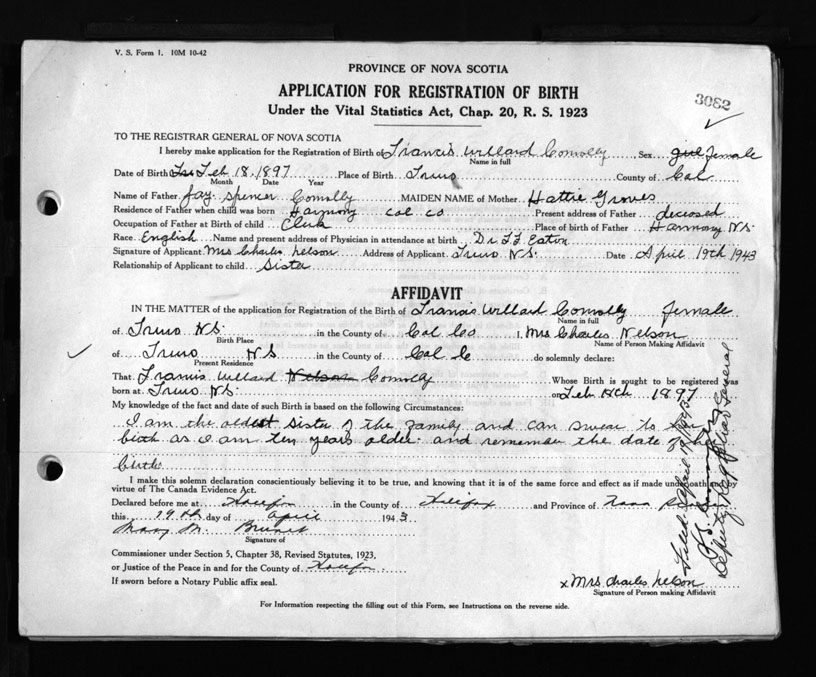 V. S. Form 1. 10M 10-42
PROVINCE OF NOVA SCOTIA
APPLICATION FOR REGISTRATION OF BIRTH
3082
Under the Vital Statistics Act, Chap. 20, R. S. 1923
TO THE REGISTRAR GENERAL OF NOVA SCOTIA
I hereby make application for the Registration of Birth of Francis Willard Connolly Sex female
Name in full
Date of Birth Feb 18. 1897 Place of Birth Truro County of Col.
Month Date Year
Name of Father Jay Spencer Connolly MAIDEN NAME of Mother Hattie Groves
Residence of Father when child was born Harmony Col co Present address of Father deceased
Occupation of Father at Birth of child Clerk Place of birth of Father Harmony N.S.
Race English Name and present address of Physician in attendance at birth Dr. F F Eaton
Signature of Applicant Mrs Charles Nelson Address of Applicant Truro N.S. Date April 19th 1943
Relationship of Applicant to child Sister
AFFIDAVIT
IN THE MATTER of the application for Registration of the Birth of Francis Willard Connolly female
Name in full
of Truro N.S. in the County of Col Co I, Mrs Charles Nelson
Birth Place Name of Person Making Affidavit
of Truro N.S in the County of Col Co do solemnly declare:
Present Residence
That Francis Willard Nelson Connolly Whose Birth is sought to be registered was
born at Truro N.S. on Feb 18th 1897
My knowledge of the fact and date of such Birth is based on the following Circumstances:
I am the oldest sister of the family and can swear to her
birth as I am ten years older and remember the date of her
birth
I make this solemn declaration conscientiously believing it to be true, and knowing that it is of the same force and effect as if made under oath and by
virtue of The Canada Evidence Act.
Declared before me at Halifax in the County of Halifax and Province of Nova
this 19th day of April 1943
Mary M. Brunt
Signature of
Commissioner under Section 5, Chapter 38, Revised Statutes, 1923,
or Justice of the Peace in and for the County of Halifax
If sworn before a Notary Public affix seal.
x Mrs Charles Nelson
Signature of Person making Affidavit
For Information respecting the filling out of this Form, see Instructions on the reverse side.
Filed April 19 1943
Deputy Registrar General